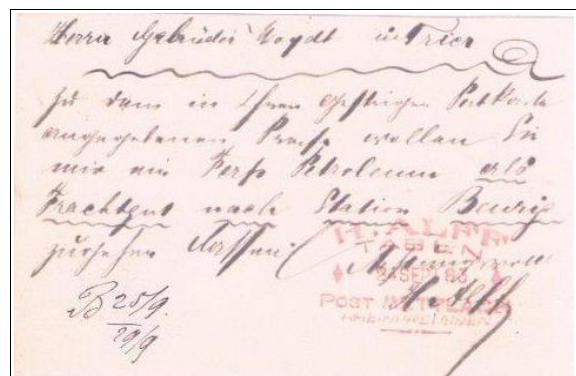 Herrn Gebrüder Voydt in Trier
Zu dem in Ihrer gestrigen Postkarte
angegebenen Preise wollen Sie
mir ein Fass Petroleum als
Frachtgut nach Station Beurig
zugehen lassen.
Achtungsvoll
H. ALFF
TABEN
24 SEP. 83
POST
B 25/9.
29/9